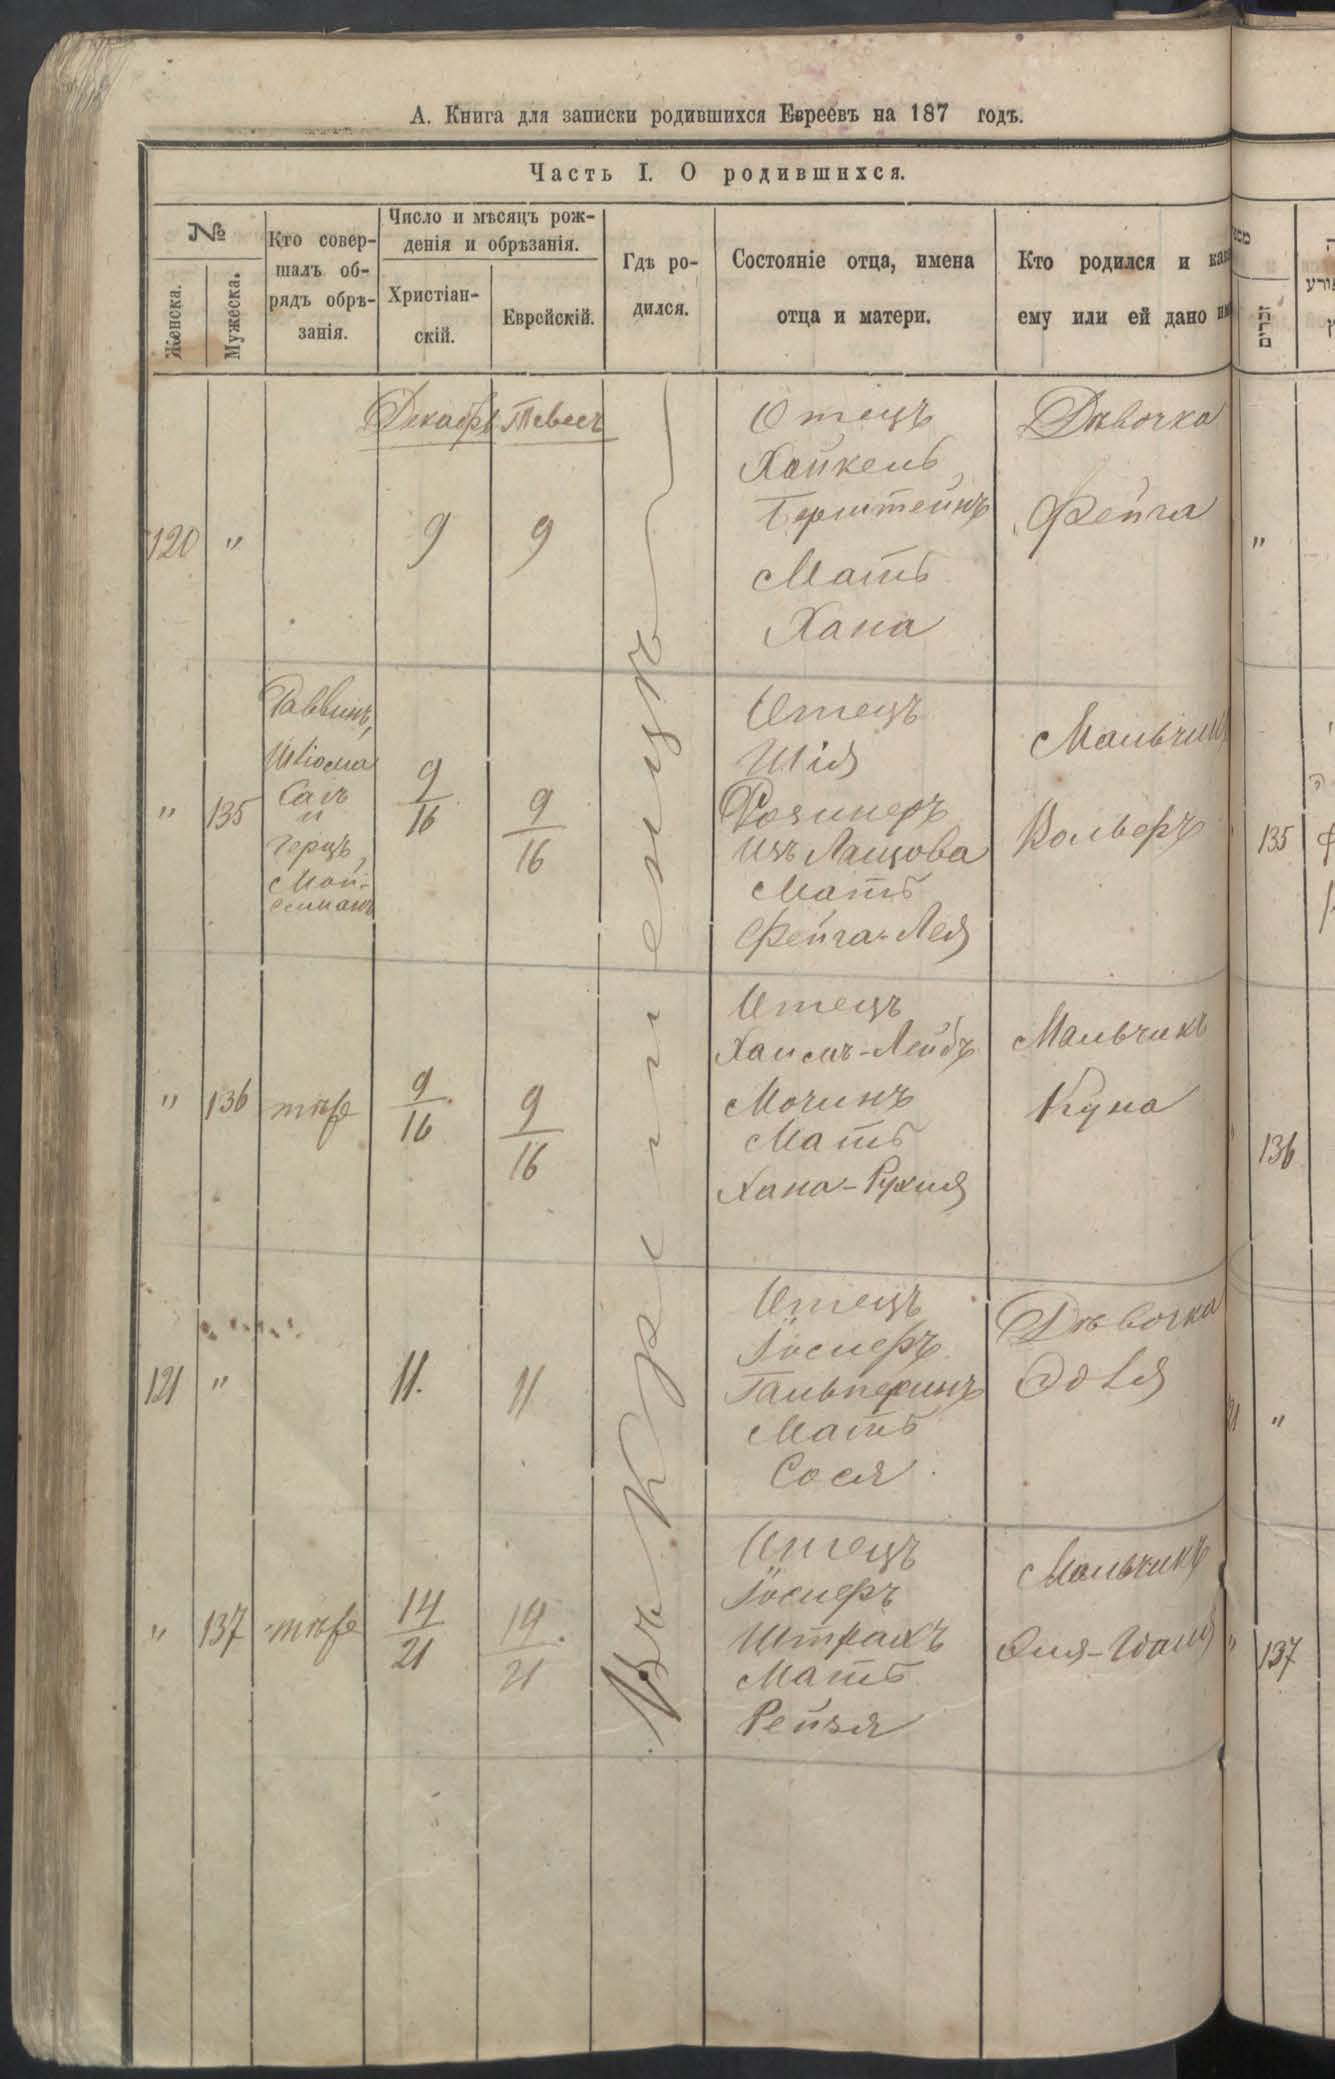 А. Книга для записки родившихся Евреевъ на 187 годъ.
Часть I. О родившихся.
№
Женска.
Мужеска.
Кто совер-
шалъ об-
рядъ обрѣ-
занія.
Число и мѣсяцъ рож-
денія и обрѣзанія.
Христіан-
скій.
Еврейскій.
Гдѣ ро-
дился.
Состояніе отца, имена
отца и матери.
Кто родился и как
ему или ей дано им
זכרים
Декабрь Тевесъ
Въ Кременецѣ
120 "
9 9
Отецъ
Хайкель
Бернштейнъ
Мать
Хана
Дѣвочка
Фейга
"
" 135
Раввинъ,
Шлiома
Саль
и
Герцъ
Мой-
сешманъ
9/16
9/16
Отецъ
Шія
Розинеръ
Изъ Лащова
Мать
Фейга-Лея
Мальчик
Вольфъ
135
" 136 тѣже
9/16
9/16
Отецъ
Хаимъ-Лейбъ
Мочинъ
Мать
Хана-Рухля
Мальчикъ
Куна
136
121 "
11. 11
Отецъ
Іосифъ
Гальперинъ
Мать
Сося
Дѣвочка
Эдля
"
" 137 тѣже
14/21
14/21
Отецъ
Іосифъ
Штрахъ
Мать
Рейзя
Мальчикъ
" 137